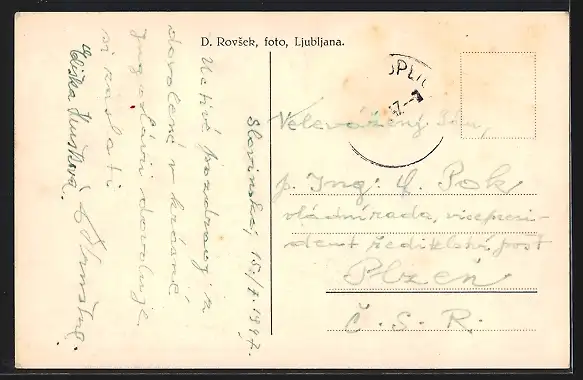 D. Rovšek, foto, Ljubljana.
Slovinsko, 15./7. 1947.
Uctivé pozdravy z
dovolené v krásné
Jugoslávii dovoluje
si zaslati
Velevážený Pan,
p. Ing. Pok
vládní rada, vicepresi-
dent ředitelství pošt
Plzeň
Č. S. R.